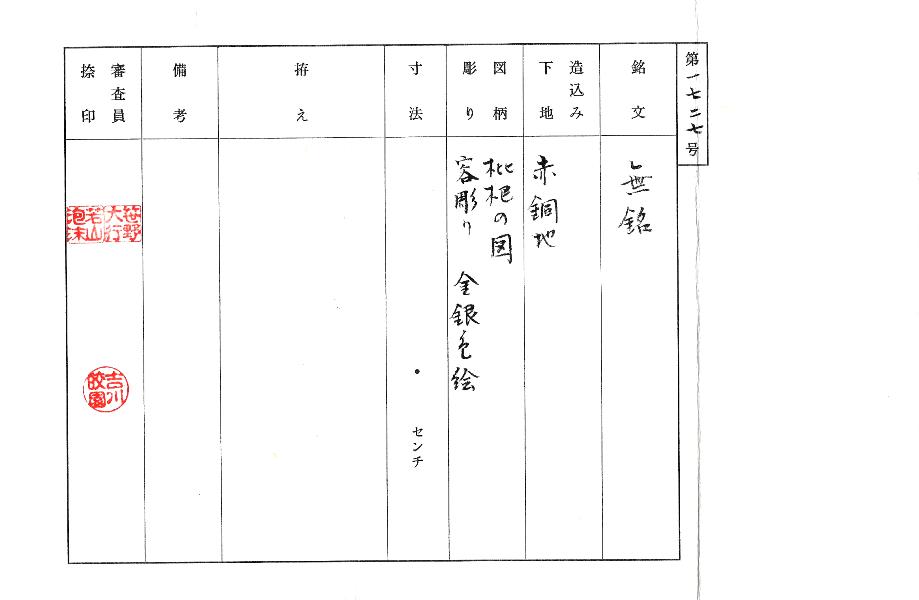 第一七二七号
銘文
無銘
造込み
下地
赤銅地
図柄
彫り
枇杷の図
容彫り 金銀色絵
寸法
・ センチ
拵え
備考
審査員
捺印
笹野
大行
若山
泡沫
吉川
皎園